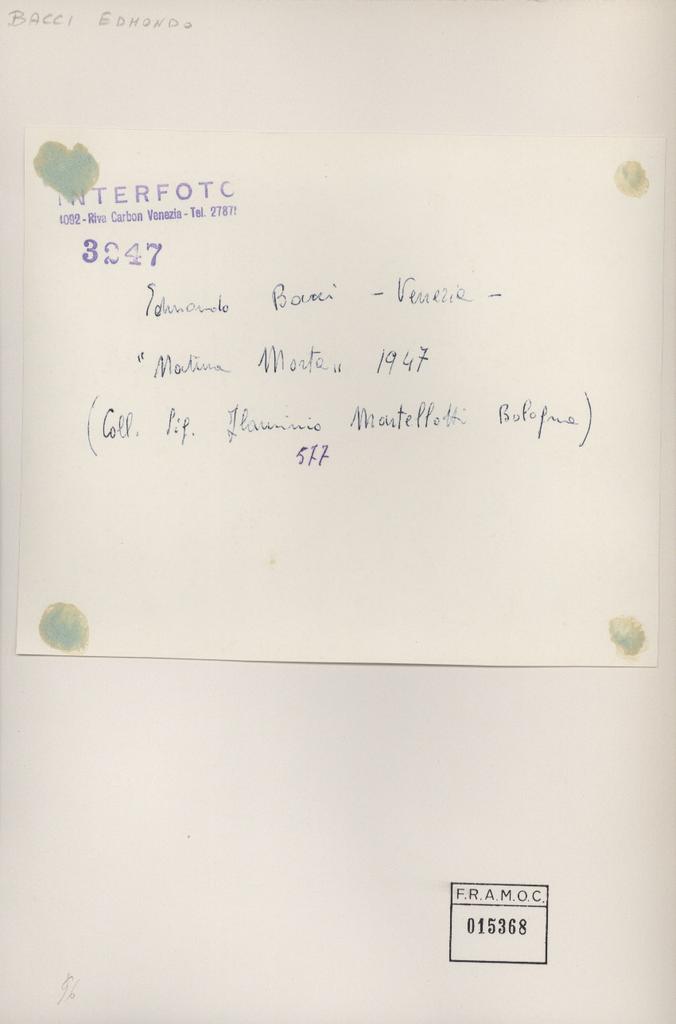 BACCI EDMONDO
INTERFOTO
4092 - Riva Carbon Venezia - Tel. 27871
3247
Edmondo Bacci - Venezia -
"Natura Morta" 1947
(Coll. Sig. Flaminio Martellotti Bologna)
577
F.R.A.M.O.C.
015368